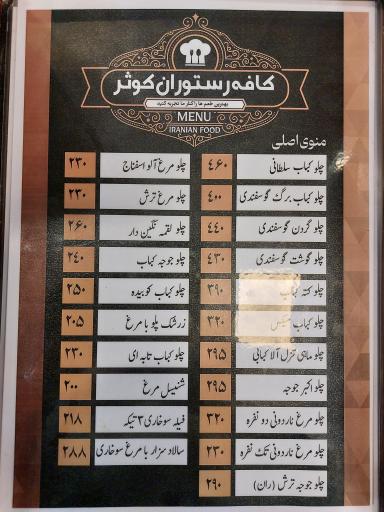 کافه رستوران کوثر
بهترین طعم ها را کنار ما تجربه کنید
MENU
IRANIAN FOOD
منوی اصلی
چلو کباب سلطانی ۴۶۰
چلو کباب برگ گوسفندی ۴۰۰
چلو گردن گوسفندی ۴۴۰
چلو گوشت گوسفندی ۴۳۰
چلو کته کباب ۳۹۰
چلو کباب میکس ۳۲۰
چلو ماهی قزل آلا کبابی ۲۹۵
چلو اکبر جوجه ۲۹۵
چلو مرغ ناردونی دو نفره ۳۲۰
چلو مرغ ناردونی تک نفره ۲۳۰
چلو جوجه ترش (ران) ۲۹۰
چلو مرغ آلو اسفناج ۲۳۰
چلو مرغ ترش ۲۳۰
چلو لقمه نگین دار ۲۶۰
چلو جوجه کباب ۲۴۰
چلو کباب کوبیده ۲۵۰
زرشک پلو با مرغ ۲۰۵
چلو کباب تابه ای ۲۳۰
شنیسل مرغ ۲۰۰
فیله سوخاری ۳ تیکه ۲۱۸
سالاد سزار با مرغ سوخاری ۲۸۸